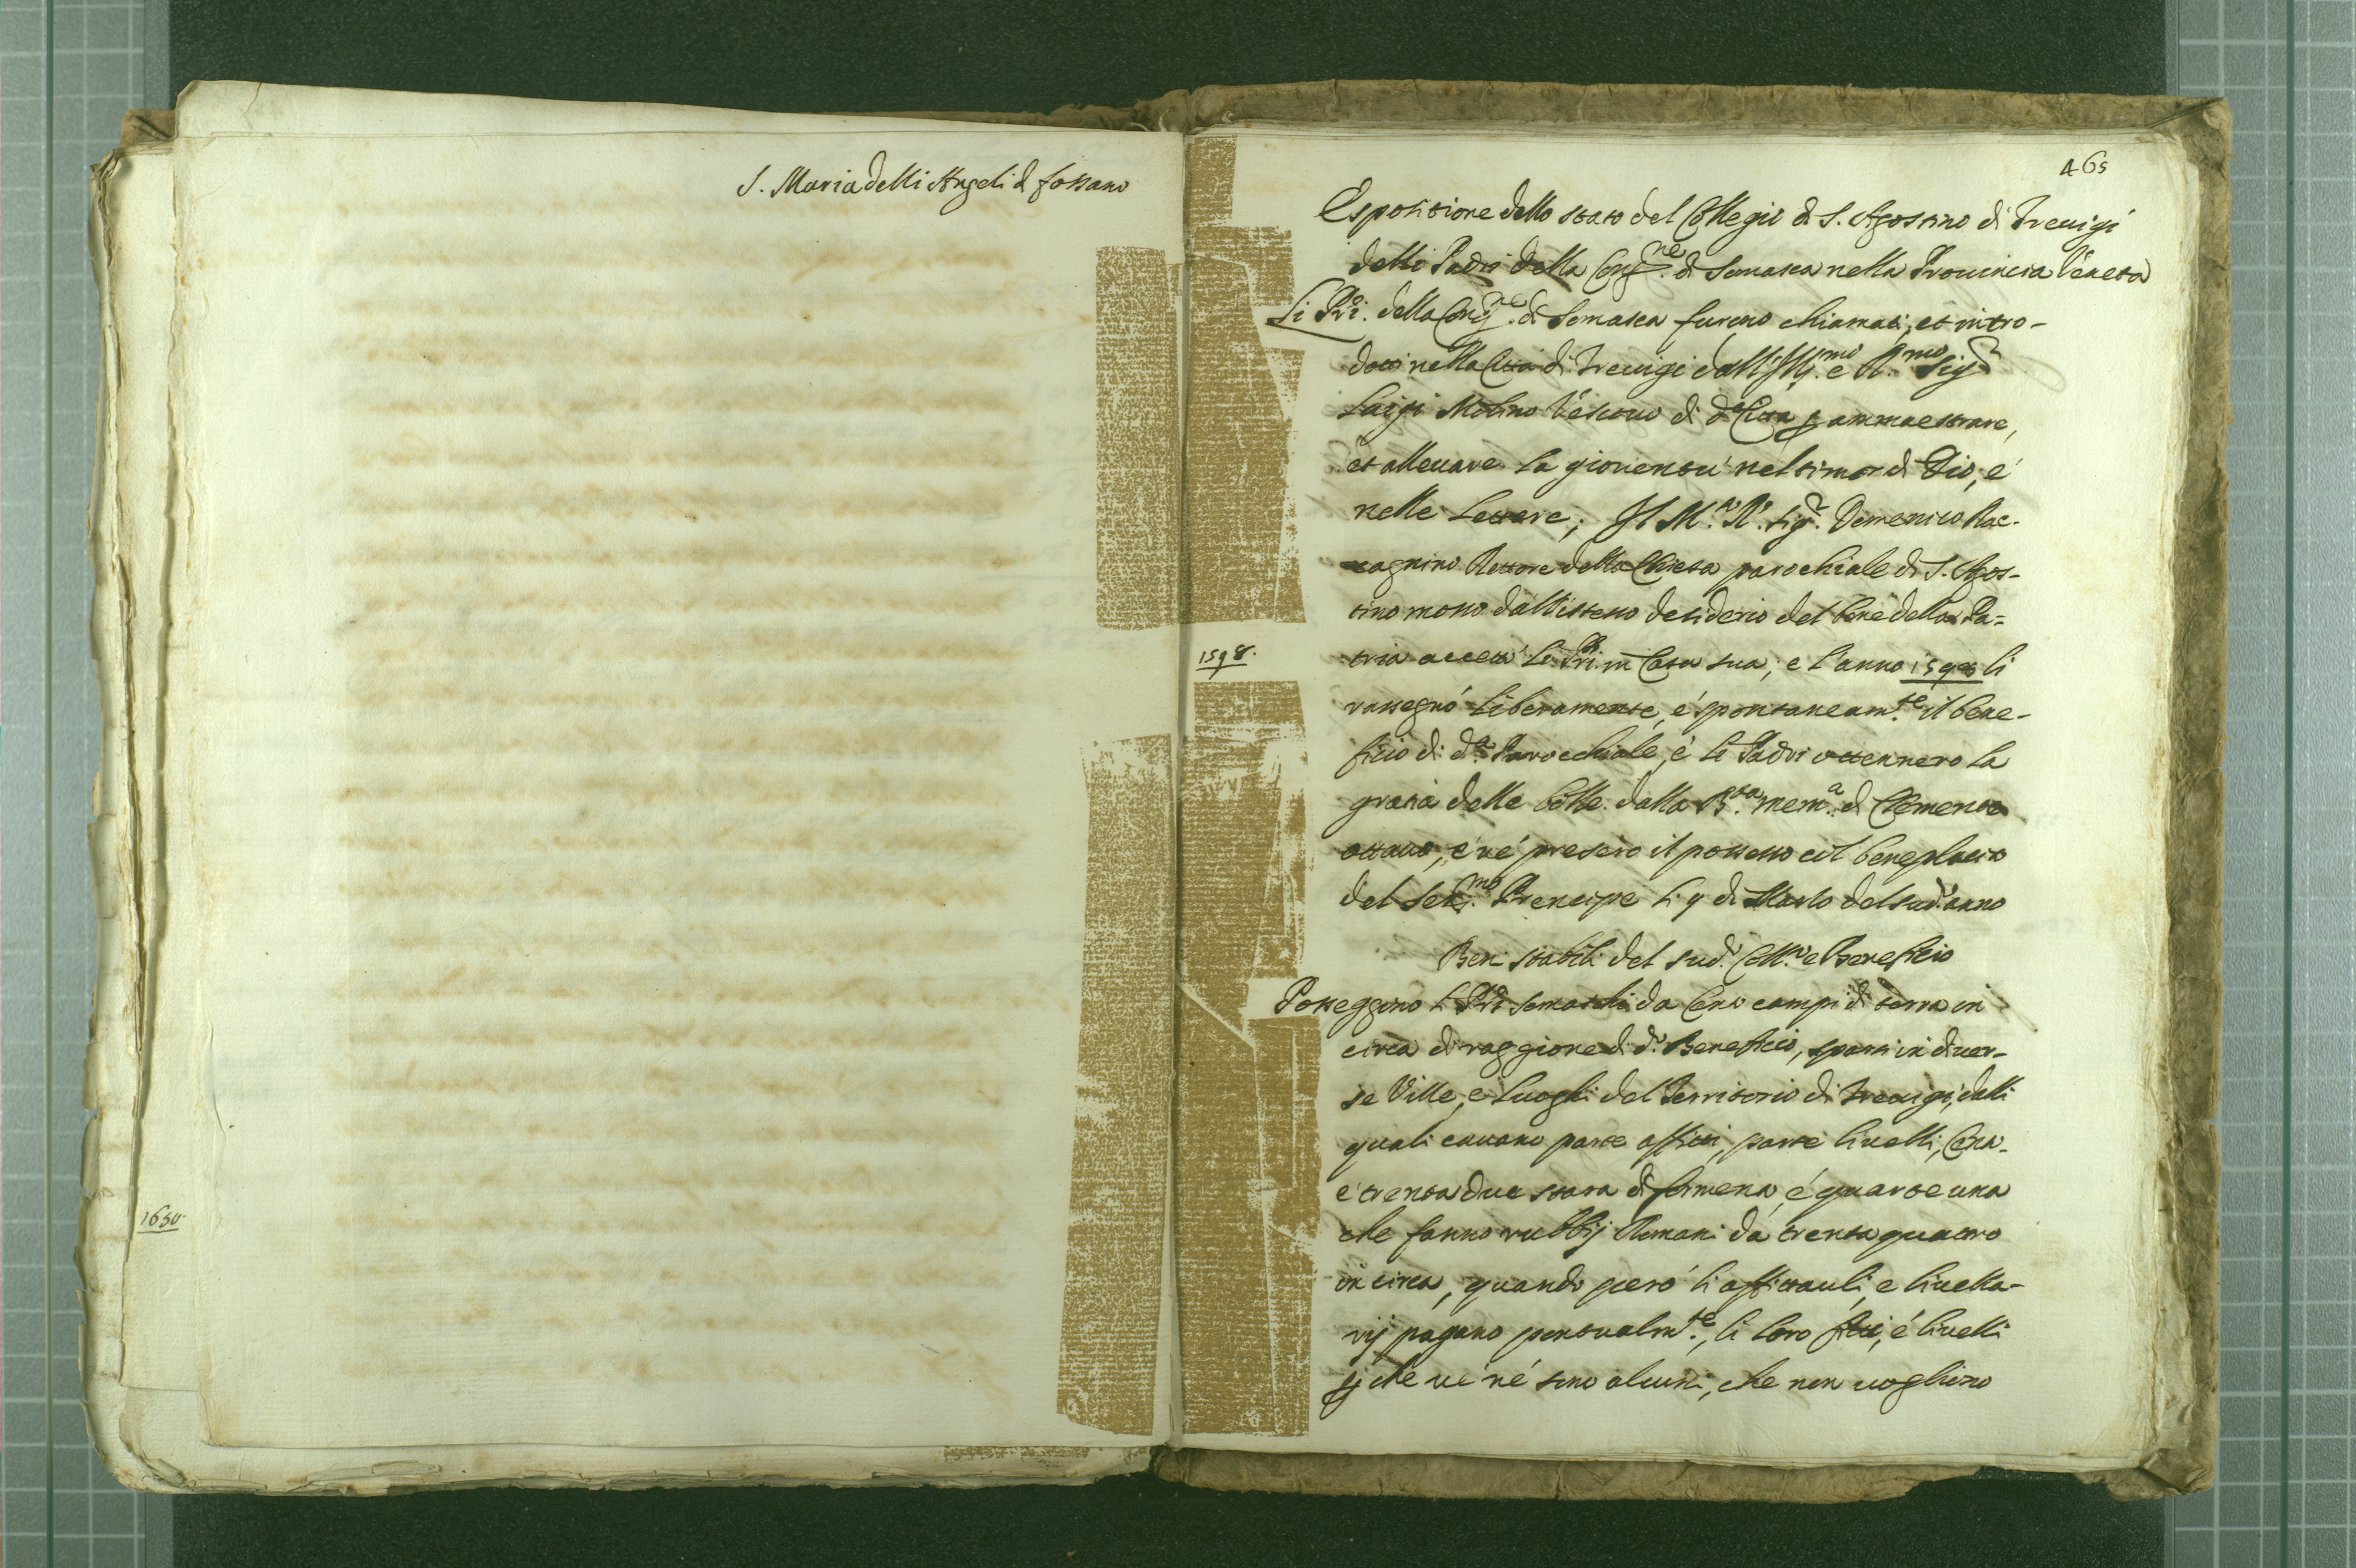 S. Maria delli Angeli di fossano
1650.
465
Espositione dello stato del Collegio di S. Agostino di Trevigi
delli Padri della Cong.ne di Somasca nella Provincia Veneta
Li PPri. della Cong.ne di Somasca furono chiamati, et intro-
dotti nella Città di Trevigi dall'Ill.mo e R.mo Sig.r
Luigi Molino Vescovo di d.a Città p ammaestrare,
et allevare la gioventù nel timor di Dio, é
nelle Lettere; Il M.to R.do Sig.r Domenico Rac-
cagnino Rettore della Chiesa parochiale di S. Agos-
tino mosso dall'istesso desiderio del bene della Pa=
1598.
tria accettò li PPri. in Casa sua, e l'anno 1598 li
rassegnó liberamente, é spontaneam.te il bene-
ficio di d.a Parochiale, é li Padri ottennero la
gratia delle bolle dalla B.ta mem.a di Clemente
ottavo, é né presero il possesso col beneplacito
del Ser.mo Prencipe li 9 di Marzo del sud.o anno
Beni stabili del sud.o Coll.o e Beneficio
Posseggono li PPri Somaschi da Cento campi di terra in
circa di raggione di d.o Beneficio, sparsi in diver-
se Ville, e Luoghi del Territorio di Trevigi, dalli
quali cavano parte affitti, parte livelli, Cento
e trenta due stara di formento, é quarte una
che fanno rubbij Romani da trenta quattro
in circa, quando peró li affittauli, e livella-
rij pagano pontualm.te, li loro fitti, é livelli
p che ve né sono alcuni, che non vogliono